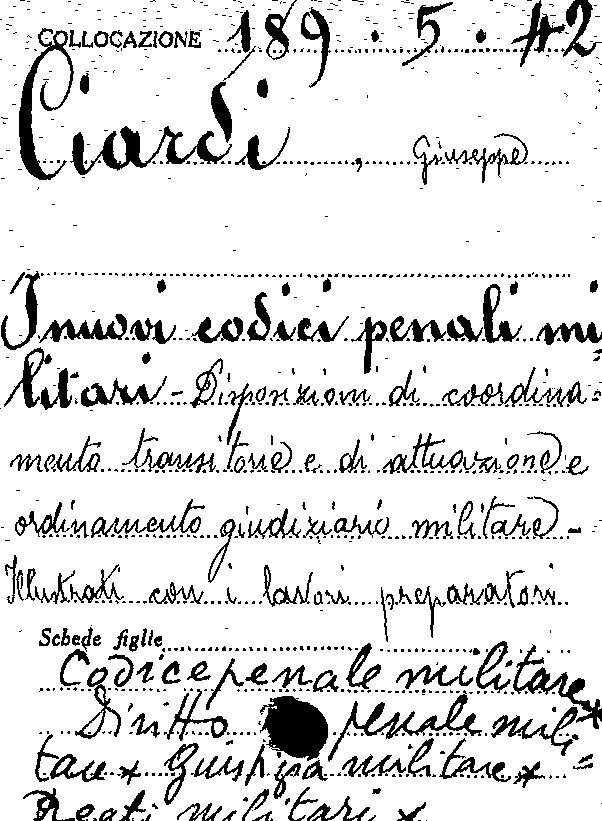 COLLOCAZIONE 189 . 5 . 42
Ciardi , Giuseppe
I nuovi codici penali mi
litari - Disposizioni di coordina=
mento transitorie e di attuazione e
ordinamento giudiziario militare -
Illustrati con i lavori preparatori
Schede figlie
Codice penale militare x
Diritto penale mili=
tare x Giuspra militare x
Reati militari x